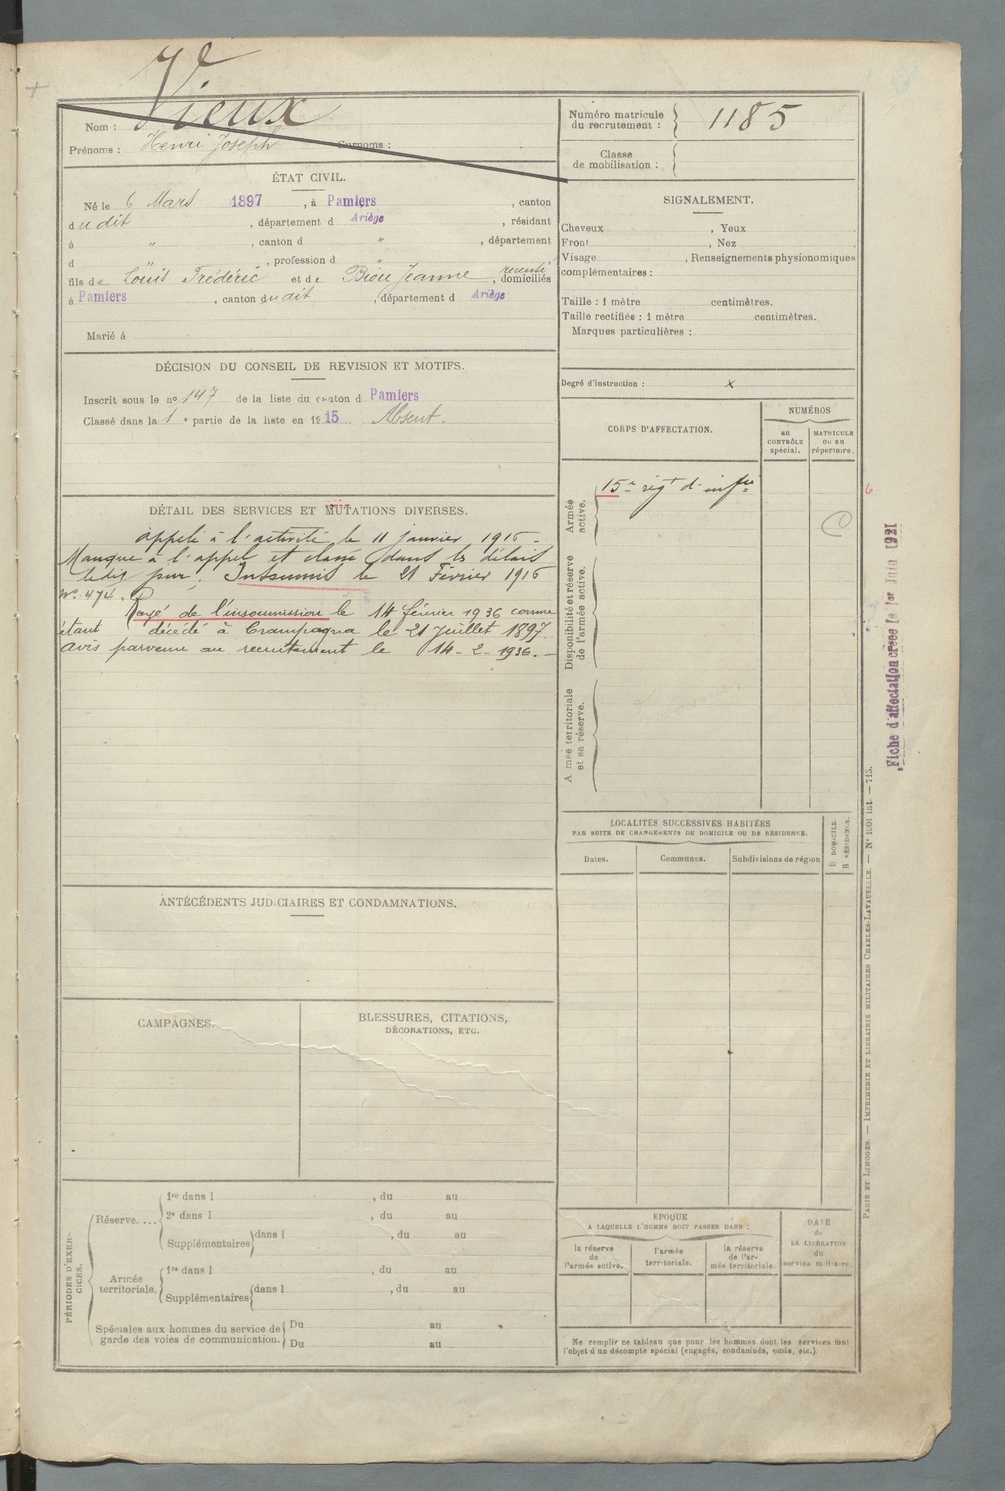 Vieux
Nom :
Prénoms : Henri Joseph Surnoms :
Numéro matricule
du recrutement : 1185
Classe
de mobilisation :
ÉTAT CIVIL.
Né le 6 Mars 1897, à Pamiers, canton
dudit, département d Ariège, résidant
à ", canton d ", département
d , profession d "
fils de Louis Frédéric et de Jeanne, domiciliés
à Pamiers, canton dudit, département d Ariège
Marié à
SIGNALEMENT.
Cheveux , Yeux
Front , Nez
Visage , Renseignements physionomiques
complémentaires :
Taille : 1 mètre centimètres.
Taille rectifiée : 1 mètre centimètres.
Marques particulières :
Degré d'instruction : x
DÉCISION DU CONSEIL DE REVISION ET MOTIFS.
Inscrit sous le no 147 de la liste du canton d Pamiers
Classé dans la 1e partie de la liste en 1915. Absent.
DÉTAIL DES SERVICES ET MUTATIONS DIVERSES.
appelé à l'activité le 11 janvier 1916 -
Manque à l'appel et classé dans les délais
Insoumis le 21 Février 1916
No 474.
Rayé de l'insoumission le 14 février 1936 comme
étant décédé à Crampagna le 21 Juillet 1897.
Avis parvenu au recrutement le 14-2-1936.-
CORPS D'AFFECTATION.
NUMÉROS
AU
CONTRÔLE
spécial.
MATRICULE
OU AU
répertoire.
Armée
active.
15e régt d'infie
6
Disponibilité et réserve
de l'armée active.
Armée territoriale
et sa réserve.
Fiche d'affectation créée le 1er Juin 1921
LOCALITÉS SUCCESSIVES HABITÉES
PAR SUITE DE CHANGEMENTS DE DOMICILE OU DE RÉSIDENCE.
Dates.
Communes.
Subdivisions de région
D DOMICILE.
R RÉSIDENCE.
ANTÉCÉDENTS JUDICIAIRES ET CONDAMNATIONS.
CAMPAGNES.
BLESSURES, CITATIONS,
DÉCORATIONS, ETC.
PÉRIODES D'EXER-
CICES.
Réserve....
1re dans l , du au
2e dans l , du au
Supplémentaires dans l , du au
Armée
territoriale.
1re dans l , du au
Supplémentaires dans l , du au
Spéciales aux hommes du service de
garde des voies de communication.
Du au
Du au
EPOQUE
A LAQUELLE L'HOMME DOIT PASSER DANS :
la réserve
de
l'armée active.
l'armée
territoriale.
la réserve
de l'ar-
mée territoriale.
DATE
de
LA LIBÉRATION
du
service militaire.
Ne remplir ce tableau que pour les hommes dont les services font
l'objet d'un décompte spécial (engagés, condamnés, omis, etc.)
PARIS ET LIMOGES. — IMPRIMERIE ET LIBRAIRIE MILITAIRES CHARLES-LAVAUZELLE. — N° 1001 int. — 715.